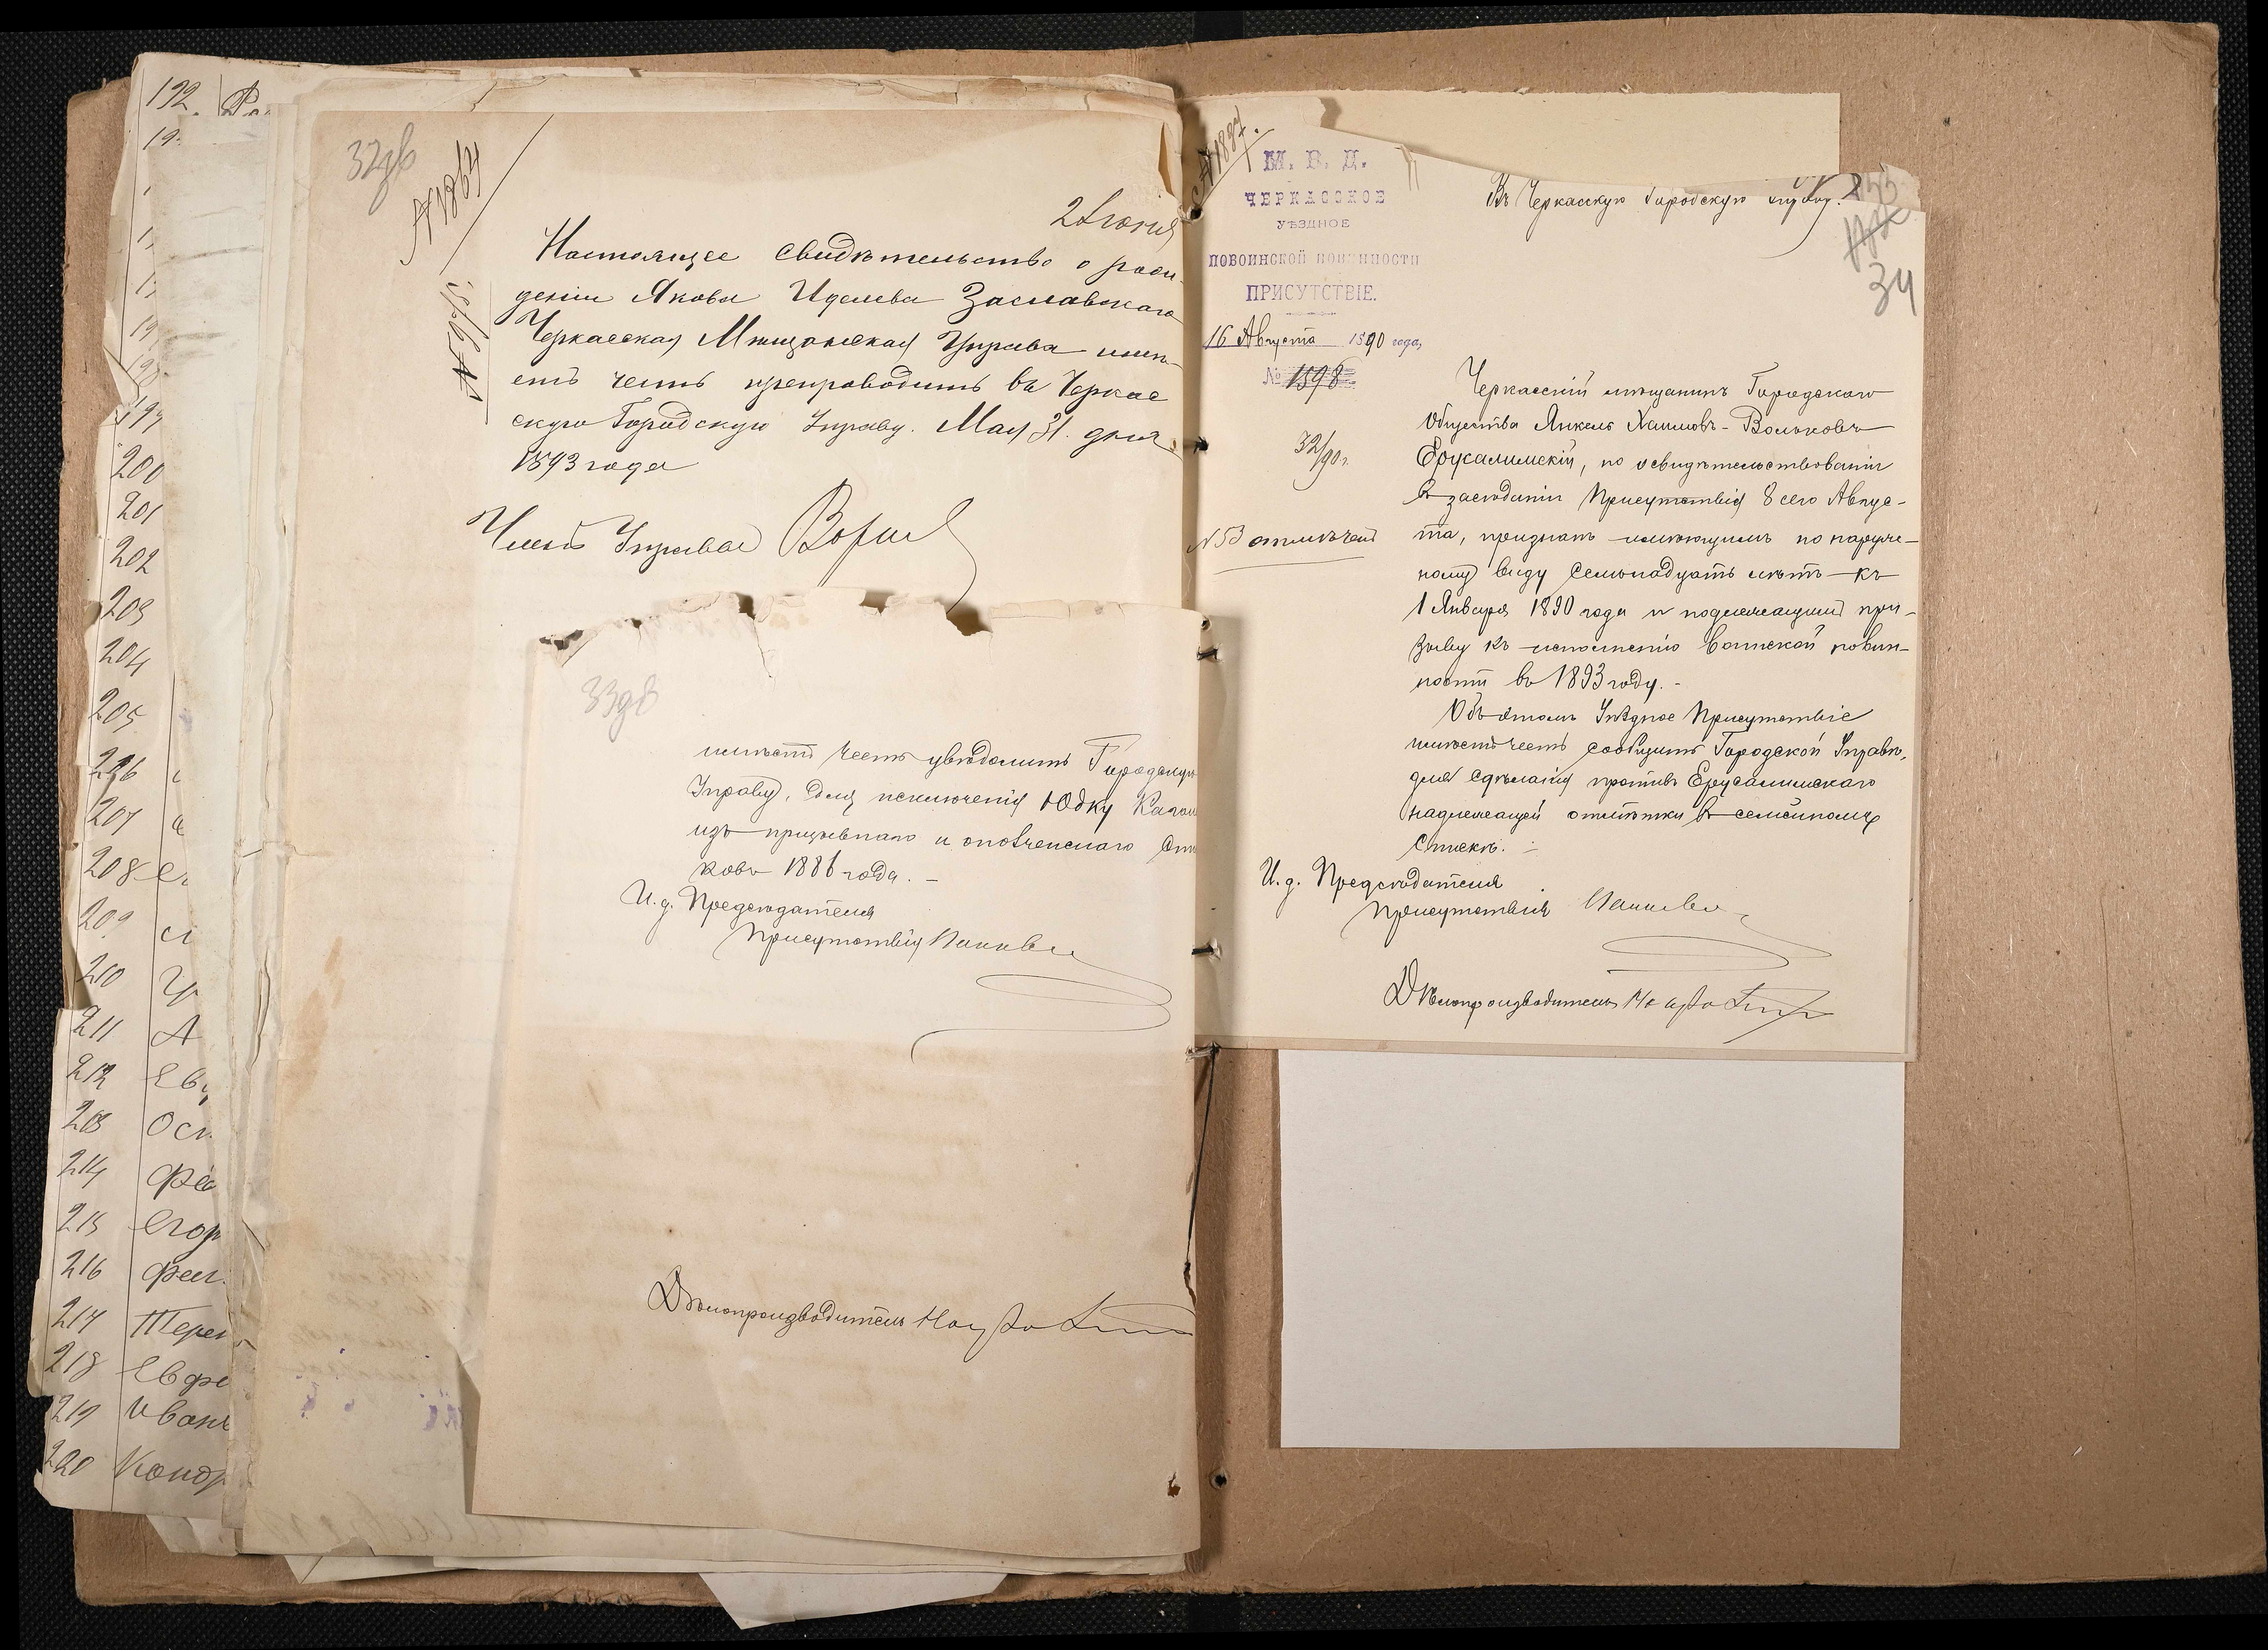 192.
19
199
200
201
202
203
204
205
206
207
208
209
210
211
212
213
214
215
216
217
218
219
220
Ев
Осн
Фео
Егор
Терен
Евфе
Иванъ
Кондр
32об
№1864
2 Іюня
Настоящее свидѣтельство о рож-
деніи Якова Иделева Заславскаго
Черкасская Мѣщанская Управа имѣ-
етъ честь препроводить въ Черкас
скую Городскую Управу. Мая 31. дня
1893 года
Членъ Управы
33об
имѣетъ честь увѣдомить Городскую
Управу, для исключенія Юдку Каган
изъ призывнаго и ополченскаго спи
ковъ 1886 года. -
И. д. Предсѣдателя
Присутствія
Дѣлопроизводитель
№1887.
М. В. Д.
ЧЕРКАССКОЕ
УѢЗДНОЕ
ПОВОИНСКОЙ ПОВИННОСТИ
ПРИСУТСТВІЕ.
16 Августа 1890 года,
№ 1598
32/90 г.
Въ Черкасскую Городскую Управу.
34
Черкасскій мѣщанинъ Городскаго
Общества Янкель Хаимовъ-Вольковъ
Ерусалимскій, по освидѣтельствованіи
въ засѣданіи Присутствія 8 сего Авгус-
та, признанъ имѣющимъ по наруж-
ному виду семьнадцать лѣтъ къ
1 Января 1890 года и подлежащій при-
зыву къ исполненію воинской повин-
ности въ 1893 году. -
Объ этомъ Уѣздное Присутствіе
имѣетъ честь сообщить Городской Управѣ,
для сдѣланія противъ Ерусалимскаго
надлежащей отмѣтки въ семейномъ
спискѣ.
И. д. Предсѣдателя
Присутствія
Дѣлопроизводитель